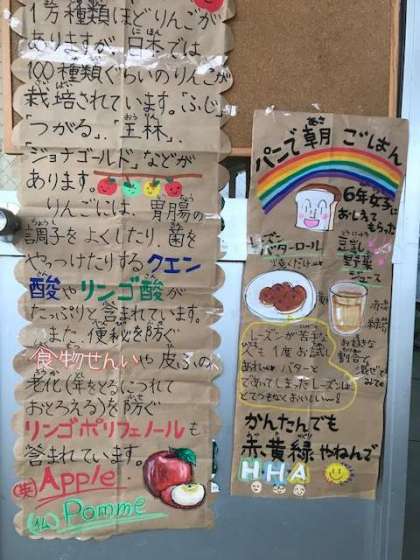 1万種類ほどりんごが
ありますが、日本では
100種類ぐらいのりんごが
栽培されています。「ふじ」
「つがる」、「王林」、
「ジョナゴールド」などが
あります。
りんごには、胃腸の
調子をよくしたり、菌を
やっつけたりするクエン
酸やリンゴ酸が
たっぷりと含まれています。
また、便秘を防ぐ
食物せんいや皮ふの
老化(年をとるにつれて
おとろえる)を防ぐ
リンゴポリフェノールも
含まれています。
(英)Apple
(仏)Pomme
パンで朝ごはん
6年女子に
おしえて
もらった
レーズン
バターロール
豆乳
野菜
ジュース
レーズンが苦手な
人も1度お試し
あれ。バターと
であってしまったレーズンは
とてつもなくおいしい〜!
お好きな
割合で
まぜて
みてね
かんたんでも
赤黄緑やねんで
HHA